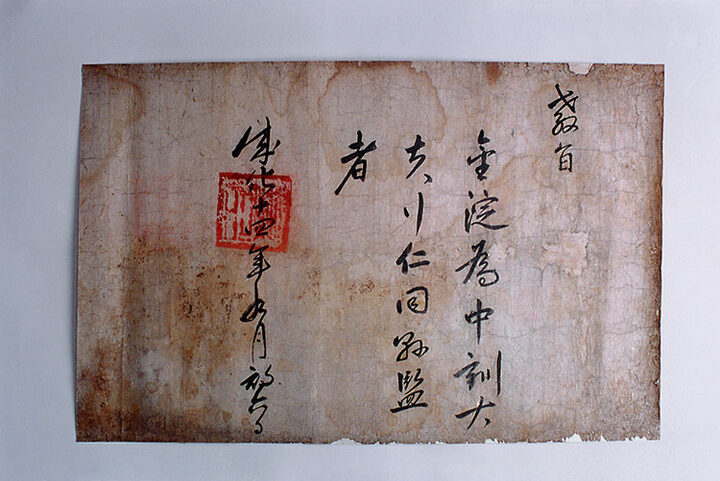 教旨
金淀爲中訓大
夫行仁同縣監
者
成化十四年九月初六日